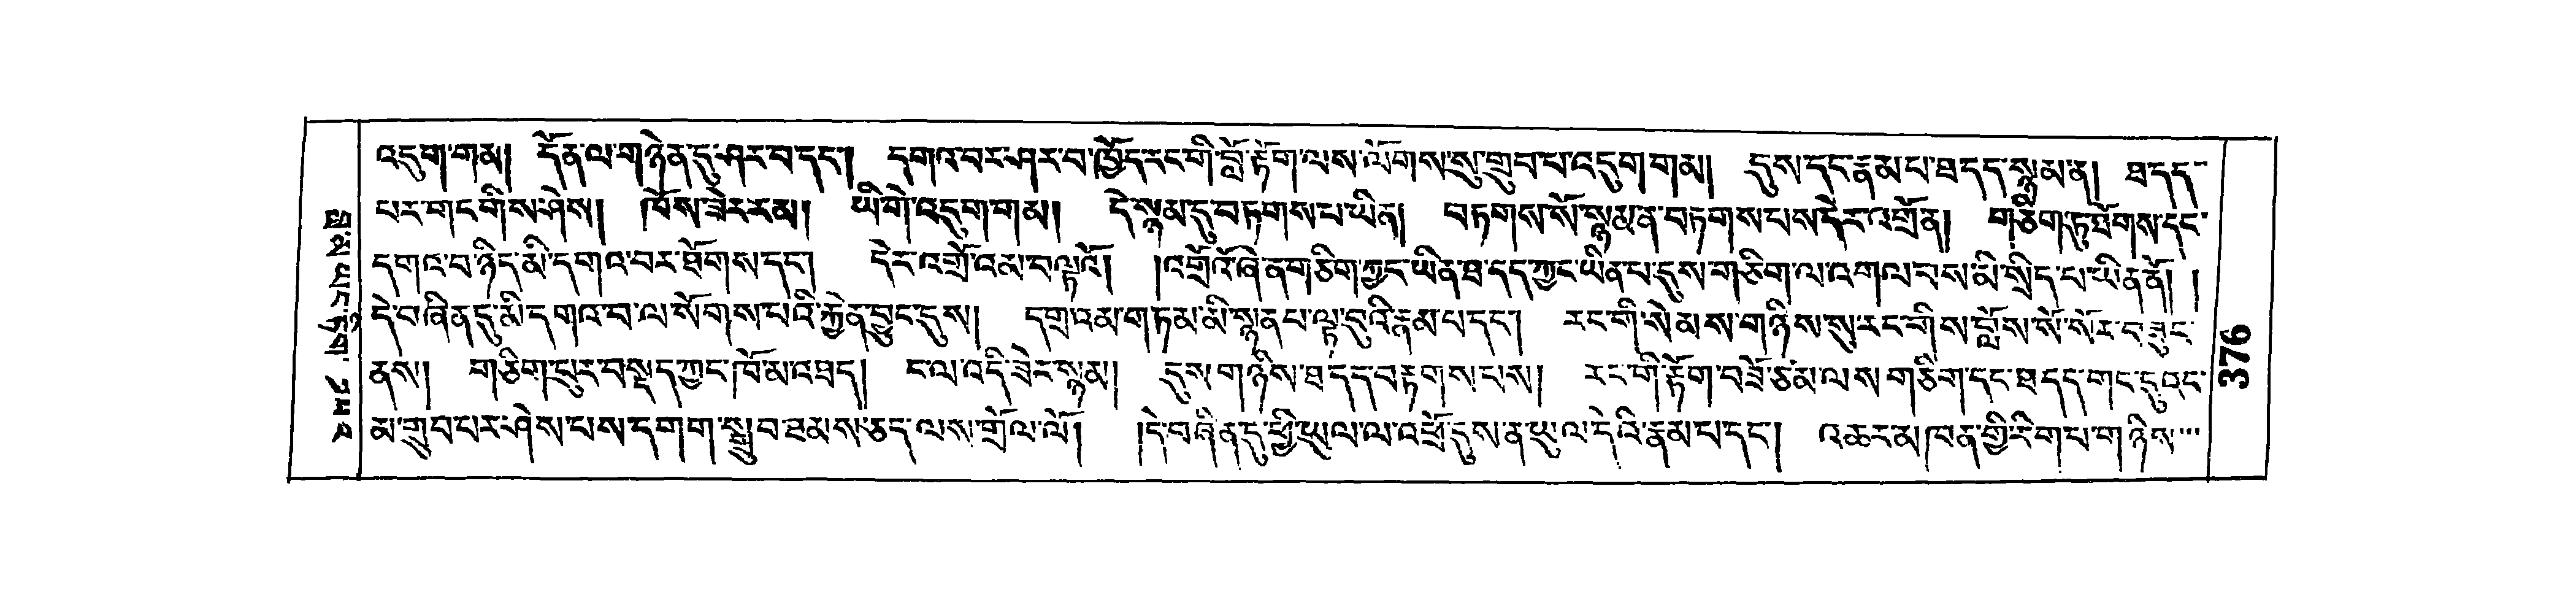 འདུག་གམ། དོན་ལ་གཉེན་དུ་ཤར་བ་དང་། དགའ་བར་ཤར་བ་ཁྱོད་རང་གི་བློ་རྟོག་ལས་ལོགས་སུ་གྲུབ་པ་འདུག་གམ། དུས་དང་རྣམ་པ་ཐ་དད་སྙམ་ན། ཐ་དད་
པར་གང་གིས་ཤེས། ཁོས་ཟེར་རམ། ཡི་གེ་འདུག་གམ། དེ་སྙམ་དུ་བཏགས་པ་ཡིན། བཏགས་སོ་སྙམ་ན་བཏགས་པས་དེར་འགྲོན། གཅིག་ཏུ་ཐོགས་དང་
དགའ་བ་ཉིད་མི་དགའ་བར་ཐོགས་དང་། དེར་འགྲོ་འམ་བལྟའོ། །འགྲོའོ་ཞེ་ན་གཅིག་ཀྱང་ཡིན་ཐ་དད་ཀྱང་ཡིན་པ་དུས་གཅིག་ལ་འགལ་བས་མི་སྲིད་པ་ཡིན་ནོ། །
དེ་བཞིན་དུ་མི་དགའ་བ་ལ་སོགས་པའི་རྐྱེན་བྱུང་དུས། དགྲ་འམ་གཏམ་མི་སྙན་པ་ལྟ་བུའི་རྣམ་པ་དང་། རང་གི་སེམས་གཉིས་སུ་རང་གིས་བློས་སོ་སོར་བཟུང་
ནས། གཅིག་ཕུར་བསྡད་ཀྱང་ཁོ་མ་འཐད། ང་ལ་འདི་ཟེར་སྙམ། དུས་གཉིས་ཐ་དད་བརྟགས་པས། རང་གི་རྟོག་བཟོ་ཙམ་ལས་གཅིག་དང་ཐ་དད་གང་དུའང་
མ་གྲུབ་པར་ཤེས་པས་དགག་སྒྲུབ་ཐམས་ཅད་ལས་གྲོལ་ལོ། །དེ་བཞིན་དུ་ཕྱི་ཡུལ་ལ་འཕྲོ་དུས་ན་ཡུལ་དེའི་རྣམ་པ་དང་། འཆར་མཁན་གྱི་རིག་པ་གཉིས
376